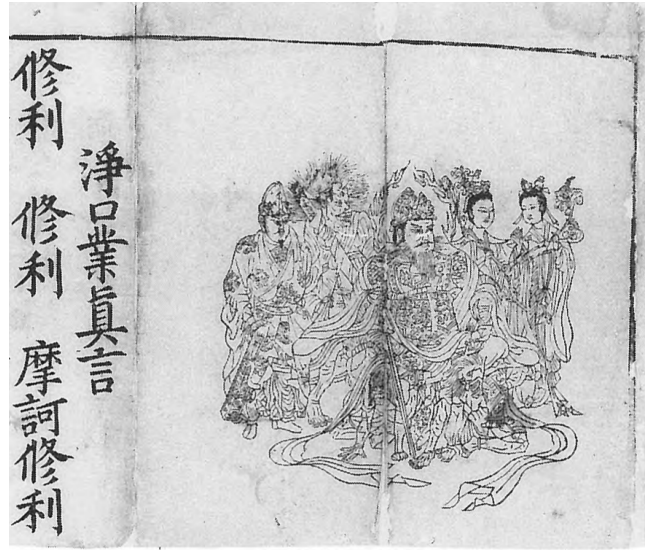 淨口業眞言
修利 修利 摩訶修利